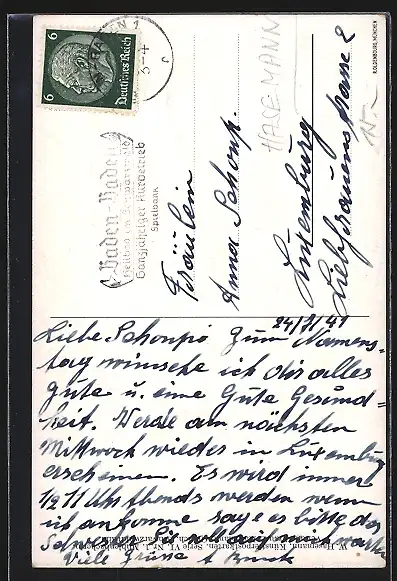 6 6
Deutsches Reich
BADEN-BADEN 1
3-4
Baden-Baden
Heilbad im Schwarzwald
Ganzjähriger Kurbetrieb
Spielbank
Fräulein
Anna Schoup.
Luxemburg
Liebfrauenstrasse 2
HASEMANN
K. OLDENBOURG, MÜNCHEN
24/7/41
Liebe Schoupi Zum Namens-
tag wünsche ich dir alles
gute u. eine Gute Gesund-
heit. Werde am nächsten
Mittwoch wieder in Luxemburg
erscheinen. Es wird immer
1/2 11 Uhr Abends werden wenn
ich ankomme sage es bitte der
W. Hasemann, Künstlerpostkarten. Serie VI Nr. 1.
Viele Grüsse